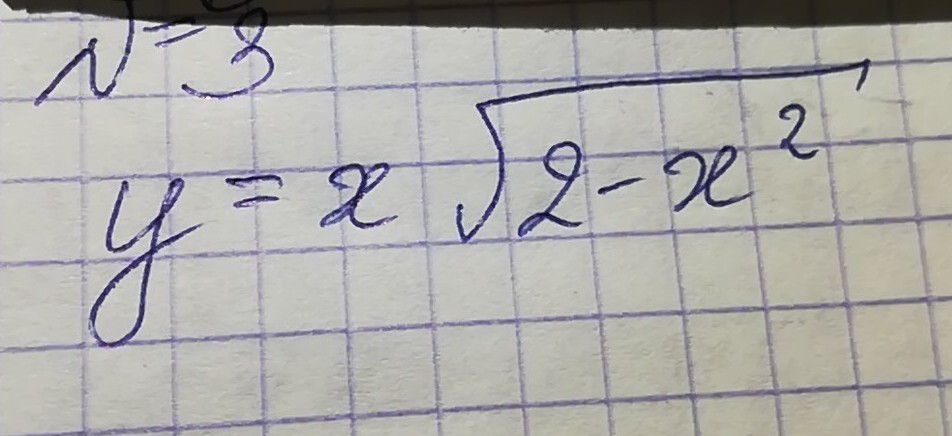 №3
y = x √(2 - x²)